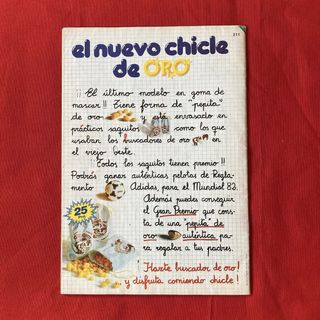 211
el nuevo chicle
de ORO
¡¡ El último modelo en goma de
mascar !! Tiene forma de "pepita"
de oro y está envasado en
prácticos saquitos como los que
usaban los buscadores de oro en
el viejo Oeste.
Todos los saquitos tienen premio !!
Podrás ganar auténticas pelotas de Regla-
mento Adidas, para el Mundial 82.
Además puedes conseguir
el Gran Premio que cons-
ta de una "pepita" de
oro auténtica pa-
ra regalar a tus padres.
25
¡ Hazte buscador de oro !
y disfruta comiendo chicle !